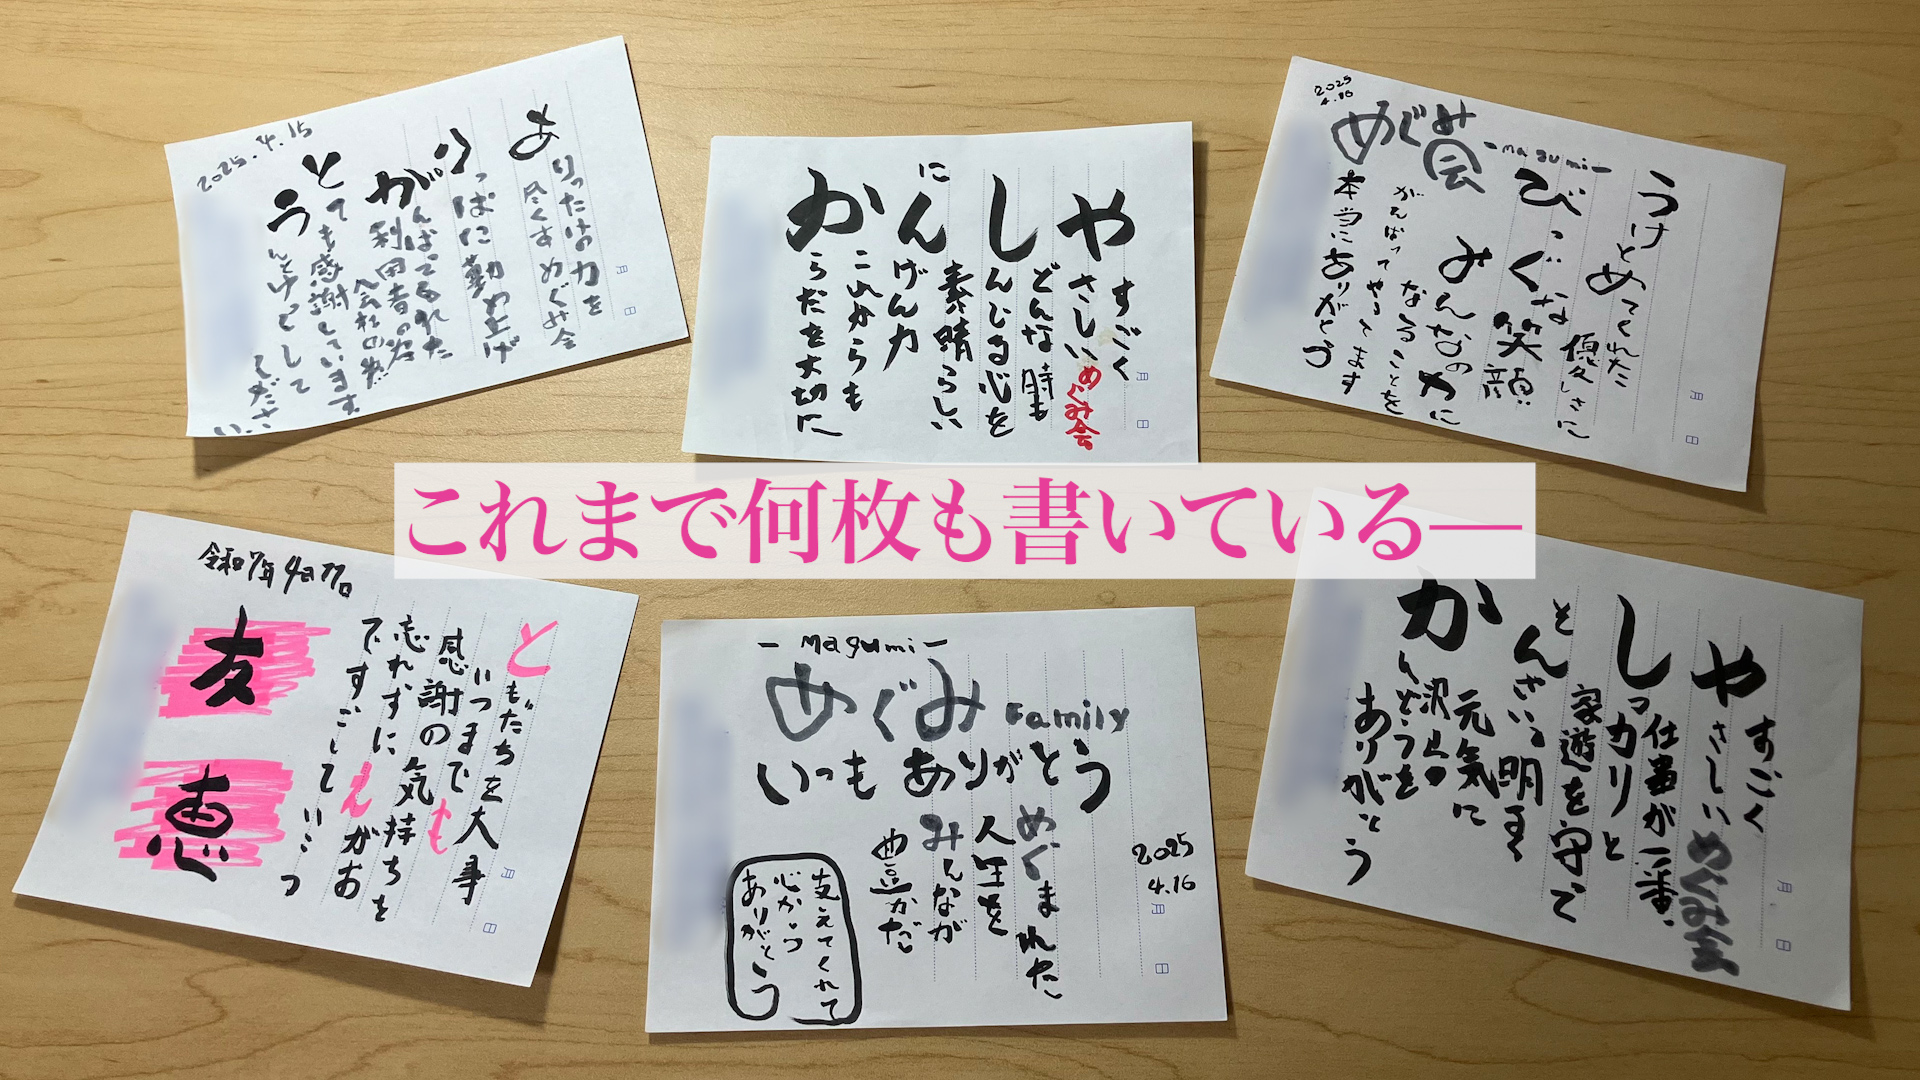 2025.4.15
あ
りったけの力を
尽くす めぐみ会
り
っぱに勤め上げ
が
んばってくれた
利用者の為
会社の為
と
ても感謝しています。
う
んとゆっくりして
てださい
月 日
や
すごく
さしいめぐみ会
し
どんな時も
んじる心を
素晴らしい
にん
げん力
か
これからも
らだを大切に
月 日
2025
4.16
めぐみ会
-magumi-
うけとめてくれた
優しさに
びっぐな笑顔
みんなの力に
なることを
がんばってやってます
本当にありがとう
月 日
これまで何枚も書いている―
令和7年4月17日
ともだちを大事
いつまでも
感謝の気持ちを
忘れずにえがお
ですごしていこう
友
恵
月 日
- Magumi -
めぐみ Family
いつも ありがとう
めぐまれた
人生を
みんなが
豊かだ
2025
4.16
支えてくれて
心から
ありがとう
月 日
や
すごく
さしいめぐみ会
し
仕事が一番、
っカリと
家遊を守て
とんさいる明るく
元気に
か
沢山の
んどうを
ありがとう
月 日